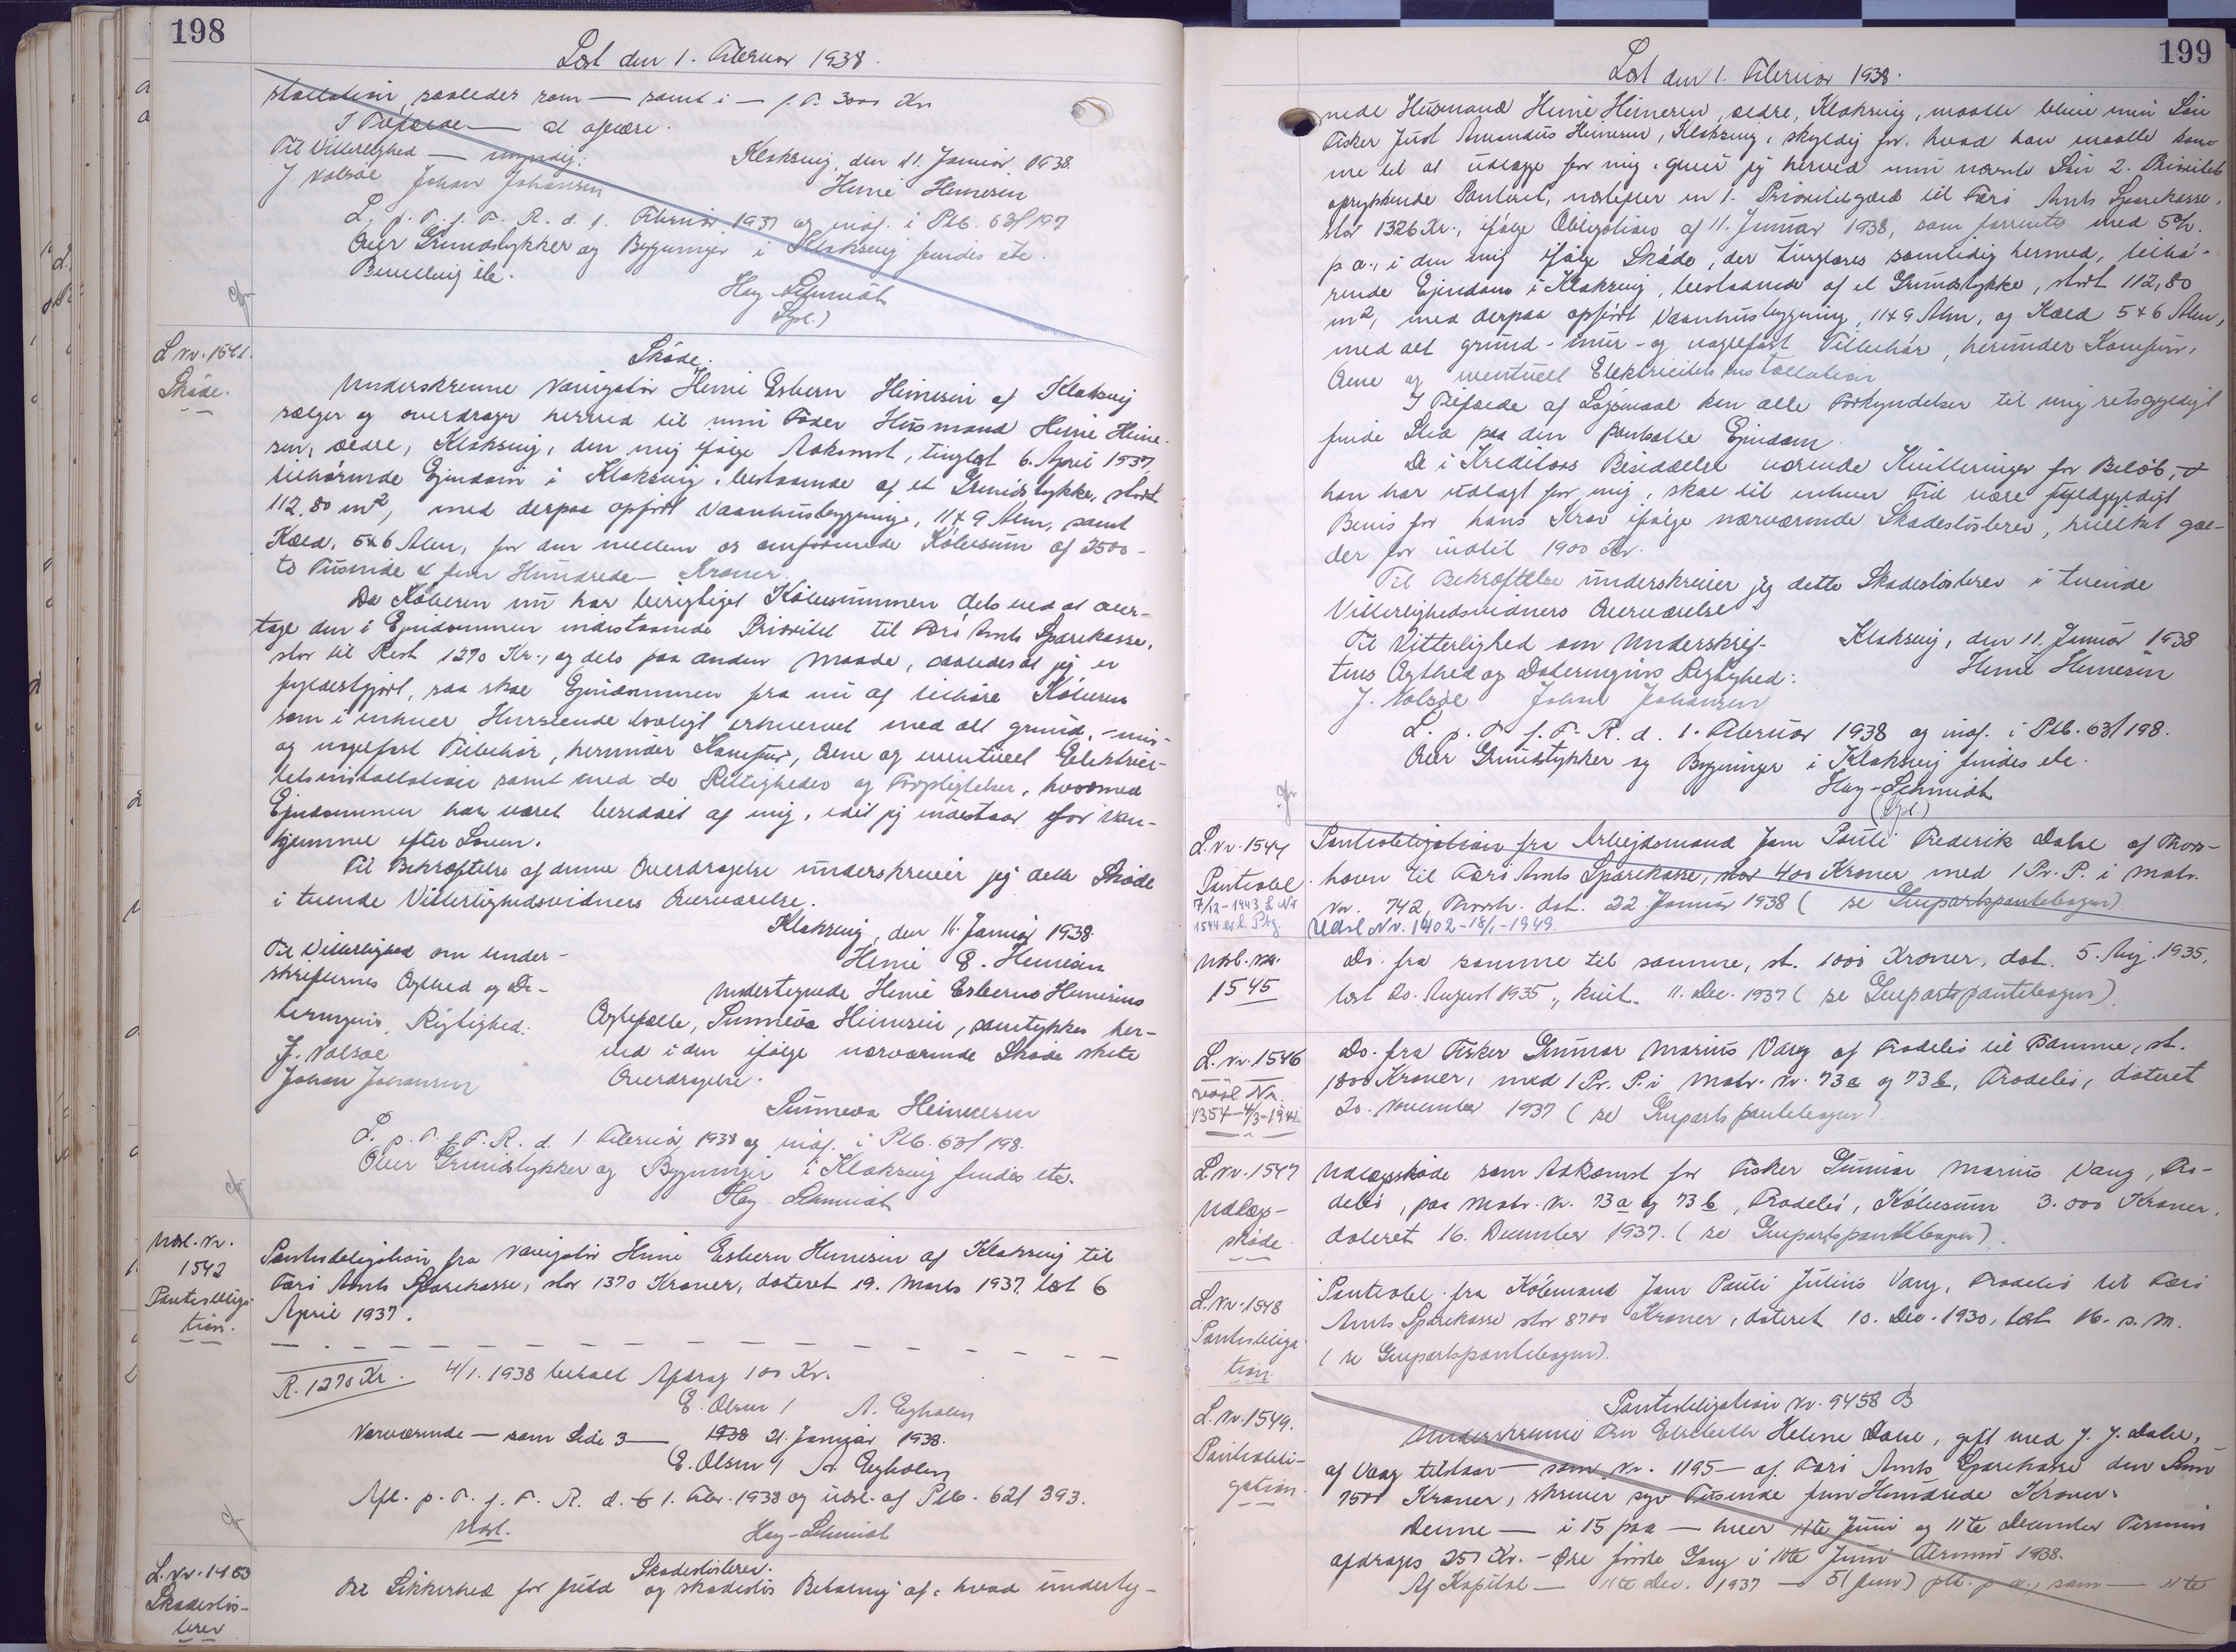 198
Læst den 1. Februar 1938.
stallation, saaledes som — samt i — f. T. 3000 Kr
I Tilfælde — at afgøre.
Til Vitterlighed — myndig:
Klaksvig, den 11. Januar 1938.
J Nolsøe Johan Johansen
Heine Heinesen
L. p. T. f. F. R. d. 1. Februar 1937 og indf. i Ptb. 63/197
Over Grundstykker og Bygninger i Klaksvig findes etc.
Bevilling etc.
Hay-Schmidt
L Nr. 1541.
Skøde.
Skøde.
Underskrevne Navigatør Heine Esbern Heinesen af Klaksvig
sælger og overdrager herved til min Fader Husmand Heine Heine-
sen, ældre, Klaksvig, den mig ifølge Adkomst, tinglæst 6. April 1937,
tilhørende Ejendom i Klaksvig, bestaaende af et Grundstykke, stort
112,80 m², med derpaa opført Vaanhusbygning, 11x9 Alen, samt
Kæld, 5x6 Alen, for den mellem os omforenede Købesum af 2500 -
to Tusinde & fem Hundrede — Kroner.
Da Køberen nu har berigtiget Købesummen dels ved at over-
tage den i Ejendommen indestaaende Prioritet til Færø Amts Sparekasse,
stor til Rest 1270 Kr., og dels paa anden Maade, saaledes at jeg er
fyldestgjort, saa skal Ejendommen fra nu af tilhøre Køberen
som i enhver Henseende lovligt erhvervet med alt grund-, mur-
og nagelfast Tilbehør, herunder Komfur, Ovne og eventuel Elektrici-
tetsinstallation samt med de Rettigheder og Forpligtelser, hvormed
Ejendommen har været besiddet af mig, idet jeg indestaar for Van-
hjemmel efter Loven.
Til Bekræftelse af denne Overdragelse underskriver jeg dette Skøde
i tvende Vitterlighedsvidners Overværelse.
Klaksvig, den 11. Januar 1938.
Til Vitterlighed om Under-
Heine E. Heinesen
skrifternes Ægthed og Da-
Undertegnede Heine Esberns Heinesens
teringens Rigtighed:
Ægtefælle, Sunneva Heinesen, samtykker her-
J. Nolsøe
ved i den ifølge nærværende Skøde skete
Johan Johansen
Overdragelse.
Sunneva Heinesen
L. p. T. f. F. R. d. 1 Februar 1938 og indf. i Ptb. 63/198.
Over Grundstykker og Bygninger i Klaksvig findes etc.
Hay Schmidt
Udsl. Nr.
1542
Pantobliga-
tion.
Pantobligation fra Navigatør Heine Esbern Heinesen af Klaksvig til
Færø Amts Sparekasse, stor 1370 Kroner, dateret 19. Marts 1937, læst 6
April 1937.
R. 1270 Kr. 4/1. 1938 betalt Afdrag 100 Kr.
E. Olsen / A. Egholm
Nærværende — som Side 3 — 1938 21. Januar 1938.
E. Olsen / A. Egholm
Afl. p. T. f. F. R. d. 1. Febr. 1938 og udsl. af Ptb. 62/393.
Udsl.
Hay-Schmidt
L. Nr. 1453
Skadesløs-
brev
Skadesløsbrev.
Til Sikkerhed for fuld og skadesløs Betaling af, hvad underteg-
199
Læst den 1. Februar 1938.
nede Husmand Heine Heinesen, ældre, Klaksvig, maatte blive min Søn
Fisker Just Amandus Heinesen, Klaksvig, skyldig for, hvad han maatte kom-
me til at udlægge for mig, giver jeg herved min nævnte Søn 2. Prioritets
oprykkende Panteret, næstefter en 1. Prioritetsgæld til Færø Amts Sparekasse,
stor 1326 Kr., ifølge Obligation af 11. Januar 1938, som forrentes med 5%
p. a., i den mig ifølge Skøde, der tinglæses samtidig hermed, tilhø-
rende Ejendom i Klaksvig, bestaaende af et Grundstykke, stort 112,80
m², med derpaa opført Vaanhusbygning, 11x9 Alen, og Kæld 5x6 Alen,
med alt grund-, mur- og nagelfast Tilbehør, herunder Komfur,
Ovne og eventuell Elektricitetsinstallation
I Tilfælde af Søgsmaal kan alle Forkyndelser til mig retsgyldigt
finde Sted paa den pantsatte Ejendom.
De i Kreditors Besiddelse værende Kvitteringer for Beløb,
han har udlagt for mig, skal til enhver Tid være fyldgyldigt
Bevis for hans Krav ifølge nærværende Skadesløsbrev, hvilket gæl-
der for indtil 1900 Kr.
Til Bekræftelse underskriver jeg dette Skadesløsbrev i tvende
Vitterlighedsvidners Overværelse
Til Vitterlighed om Underskrif-
Klaksvig, den 11. Januar 1938
tens Ægthed og Dateringens Rigtighed:
Heine Heinesen
J. Nolsøe Johan Johansen
L. p. T. f. F. R. d. 1. Februar 1938 og indf. i Ptb. 63/198.
Over Grundstykker og Bygninger i Klaksvig findes etc.
Hay-Schmidt
L. Nr. 1544
Pantobl.
7/12-1943 L Nr
Pantobligation fra Arbejdsmand Jens Pauli Frederik Dahl af Thors-
havn til Færø Amts Sparekasse, stor 400 Kroner med 1 Pr. P. i Matr.
Nr. 742, Thorsh. dat. 22 Januar 1938 (se Genpartspantebogen).
Udsl Nr. 1402-18/1-1949.
Udsl. Nr.
1545
Do. fra samme til samme, st. 1000 Kroner, dat. 5. Aug. 1935,
læst 20. August 1935, kvit. 11. Dec. 1937 (se Genpartspantebogen).
L. Nr. 1546
Udsl Nr.
1354-4/3-1941
Do. fra Fisker Gunnar Marius Vang af Frodebø til Samme, st.
1800 Kroner, med 1 Pr. P. i Matr. Nr. 73a og 73b, Frodebø, dateret
20. November 1937 (se Genpartspantebogen)
L. Nr. 1547
Udlægs-
skøde.
Udlægsskøde som Adkomst for Fisker Gunnar Marius Vang, Fro-
debø, paa Matr. Nr. 73a og 73b, Frodebø, Købesum 3.000 Kroner,
dateret 16. December 1937. (se Genpartspantebogen).
L. Nr. 1548
Pantobliga-
tion.
Pantobl. fra Købmand Jens Pauli Julius Vang, Frodebø til Færø
Amts Sparekasse stor 8700 Kroner, dateret 10. Dec. 1930, læst 16. s. M.
(se Genpartspantebogen).
L. Nr. 1549.
Pantobli-
gation.
Pantobligation Nr. 9458 B
Underskrevne Fru Elsebeth Helene Dahl, gift med J. J. Dahl,
af Vaag tilstaar — som Nr. 1195 — af Færø Amts Sparekasse den Sum
7500 Kroner, skriver syv Tusinde fem Hundrede Kroner.
Denne — i 15 paa — hver 11te Juni og 11te December Termin
afdrages 250 Kr. - Øre første Gang i 11te Juni Termin 1938.
Af Kapital — 11te Dec. 1937 — 5 (fem) pCt. p. a., som — 11te